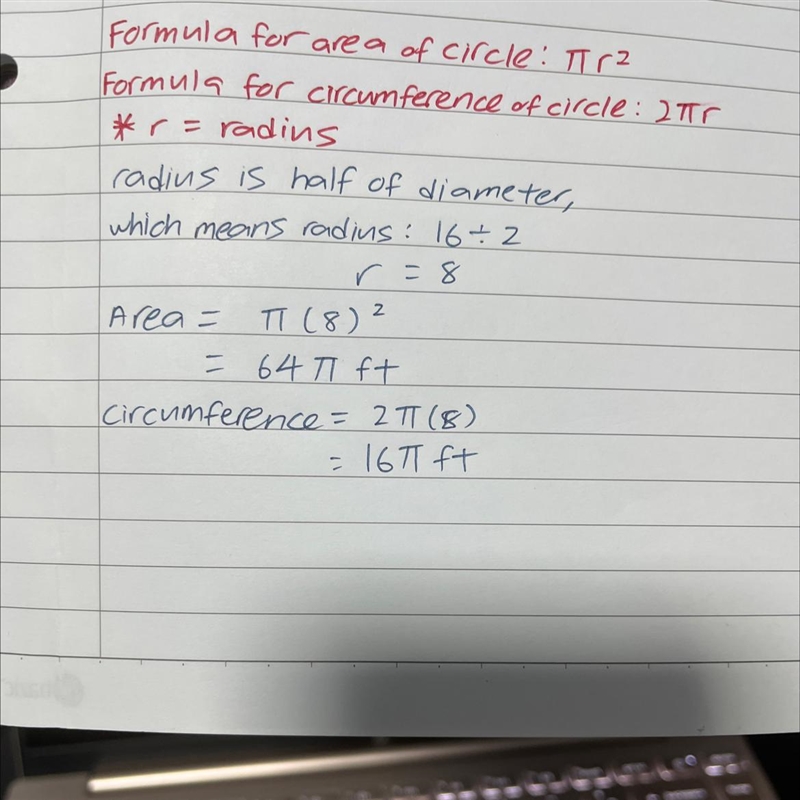 Formula for area of circle: πr²
Formula for circumference of circle: 2πr
* r = radius
radius is half of diameter,
which means radius: 16 ÷ 2
r = 8
Area = π(8)²
= 64π ft
Circumference = 2π(8)
= 16π ft